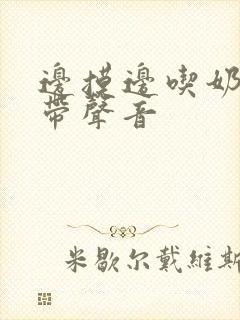 邊摸邊喫奶
帶聲音
米歇尔戴維斯